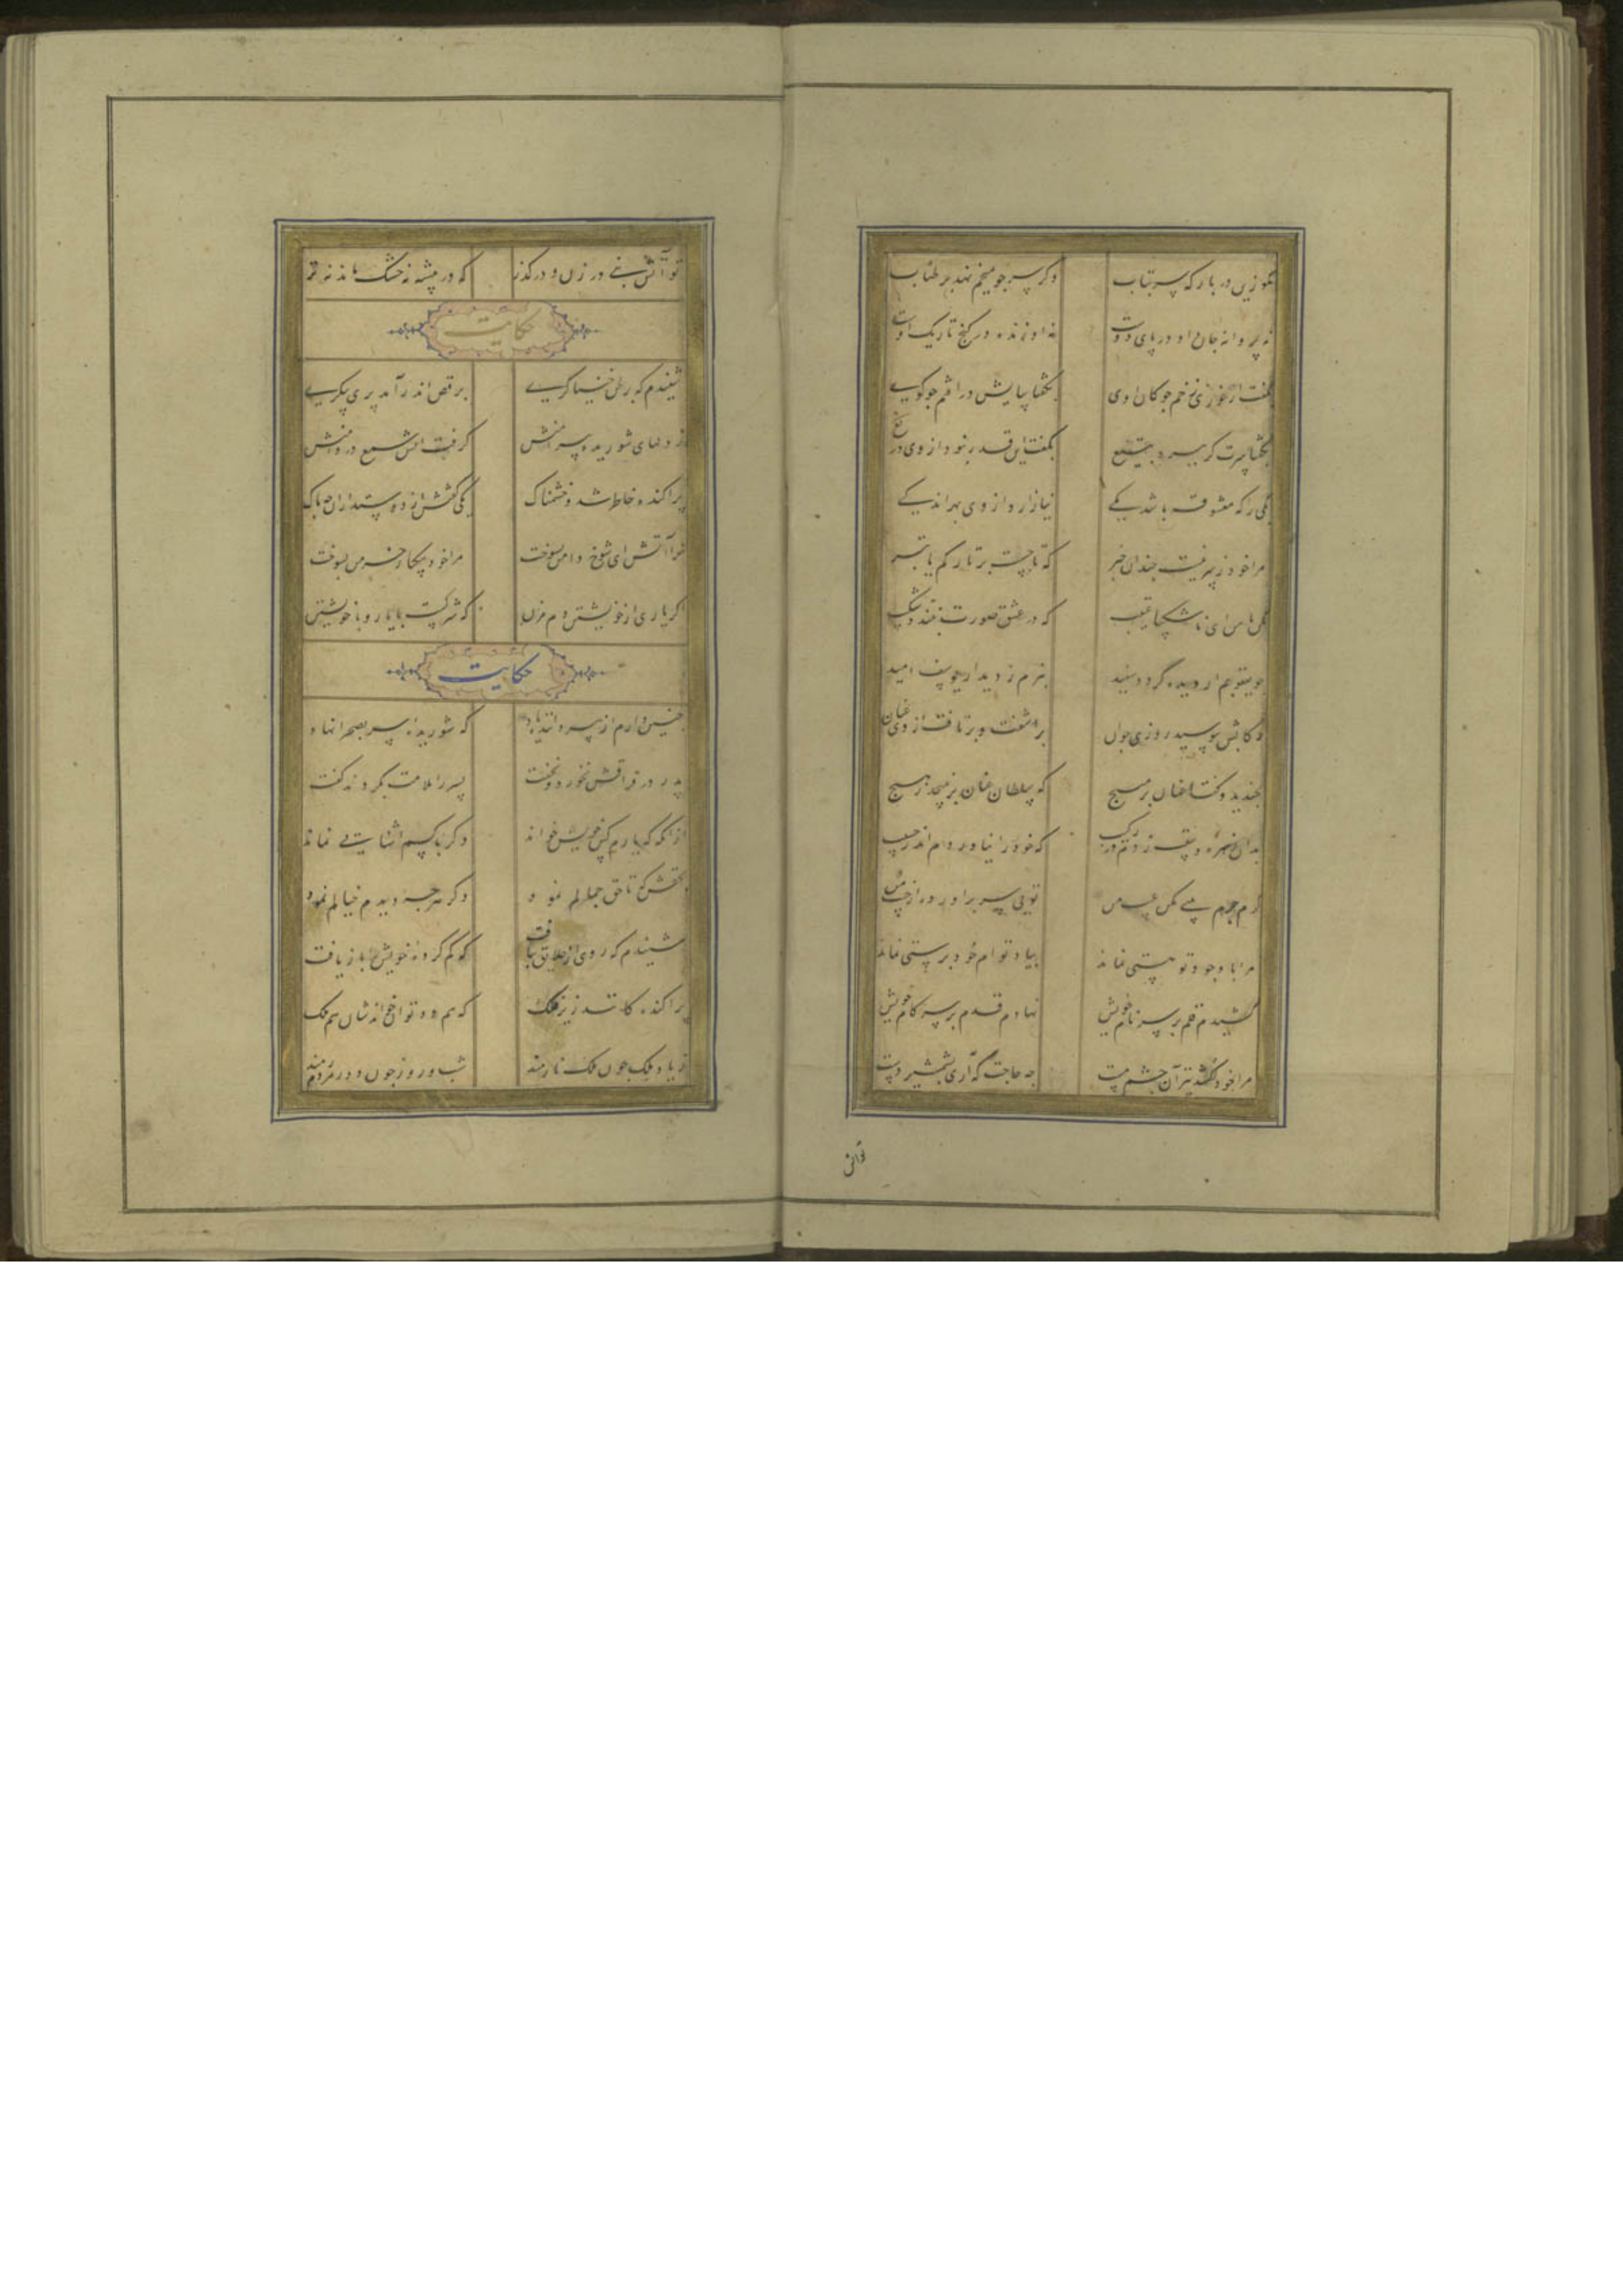 بگو زین در بار که سر بتاب
وگر سر چو میخم نهد بر طناب
نه پروانه جان داده در پای دوست
به از زنده در کنج تاریک اوست
بگفت ار خوری زخم چوگان اوی
بگفتا بپایش در افتم چو گوی
بگفتا سرت گر ببرد بتیغ
بگفت این قدر نبود از وی دریغ
یکی را که معشوق باشد یکی
نیازارد از وی بهر اندکی
مرا خود ز سر نیست چندان خبر
که تاجست بر تارکم یا تبر
مکن با من ای ناشکیبا عتیب
که در عشق صورت نبندد شکیب
چو یعقوبم ار دیده گردد سفید
نبرم ز دیدار یوسف امید
رکابش ببوسید روزی جوان
برآشفت و برتافت از وی عنان
بخندید و گفتا عنان بر مپیچ
که سلطان عنان برنپیچد ز هیچ
که خود را نیاوردم اندر حسیب
گرم جرم بینی مکن عیب من
تویی سر برآورده از جیب من
مرا با وجود تو هستی نماند
بیاد توام خود پرستی نماند
کشیدم قلم بر سر نام خویش
نهادم قدم بر سر کام خویش
مرا خود کشد تیر آن چشم مست
چه حاجت که آری بشمشیر دست
تو آتش
تو آتش بنی در زن و در گذر
که در بیشه نه خشک ماند نه تر
حکایت
شنیدم که بر لحن خنیاگری
برقص اندر آمد پری پیکری
ز دلهای شوریده پیرامنش
گرفت آتش شمع در دامنش
پراکنده خاطر شد و خشمناک
یکی گفتش از دوستداران چه باک
ترا آتش ای شوخ دامن بسوخت
مرا خود بیکبار خرمن بسوخت
اگر یاری از خویشتن دم مزن
که شرکست با یار و با خویشتن
حکایت
چنین دارم از پیر داننده یاد
که شوریده سر بصحرا نهاد
پدر در فراقش نخورد و نخفت
پسر را ملامت بکردند گفت
از آنگه که یارم کس خویش خواند
دگر با کسم آشنایی نماند
بحقش که تا حق جمالم نمود
دگر هرچه دیدم خیالم نمود
شنیدم که روی از خلایق بتافت
که گم کرده خویش را باز یافت
پراکنده کانند زیر فلک
که هم دد توان خواندشان هم ملک
ز یاد ملک چون ملک نارمند
شب و روز چون دد ز مردم رمند